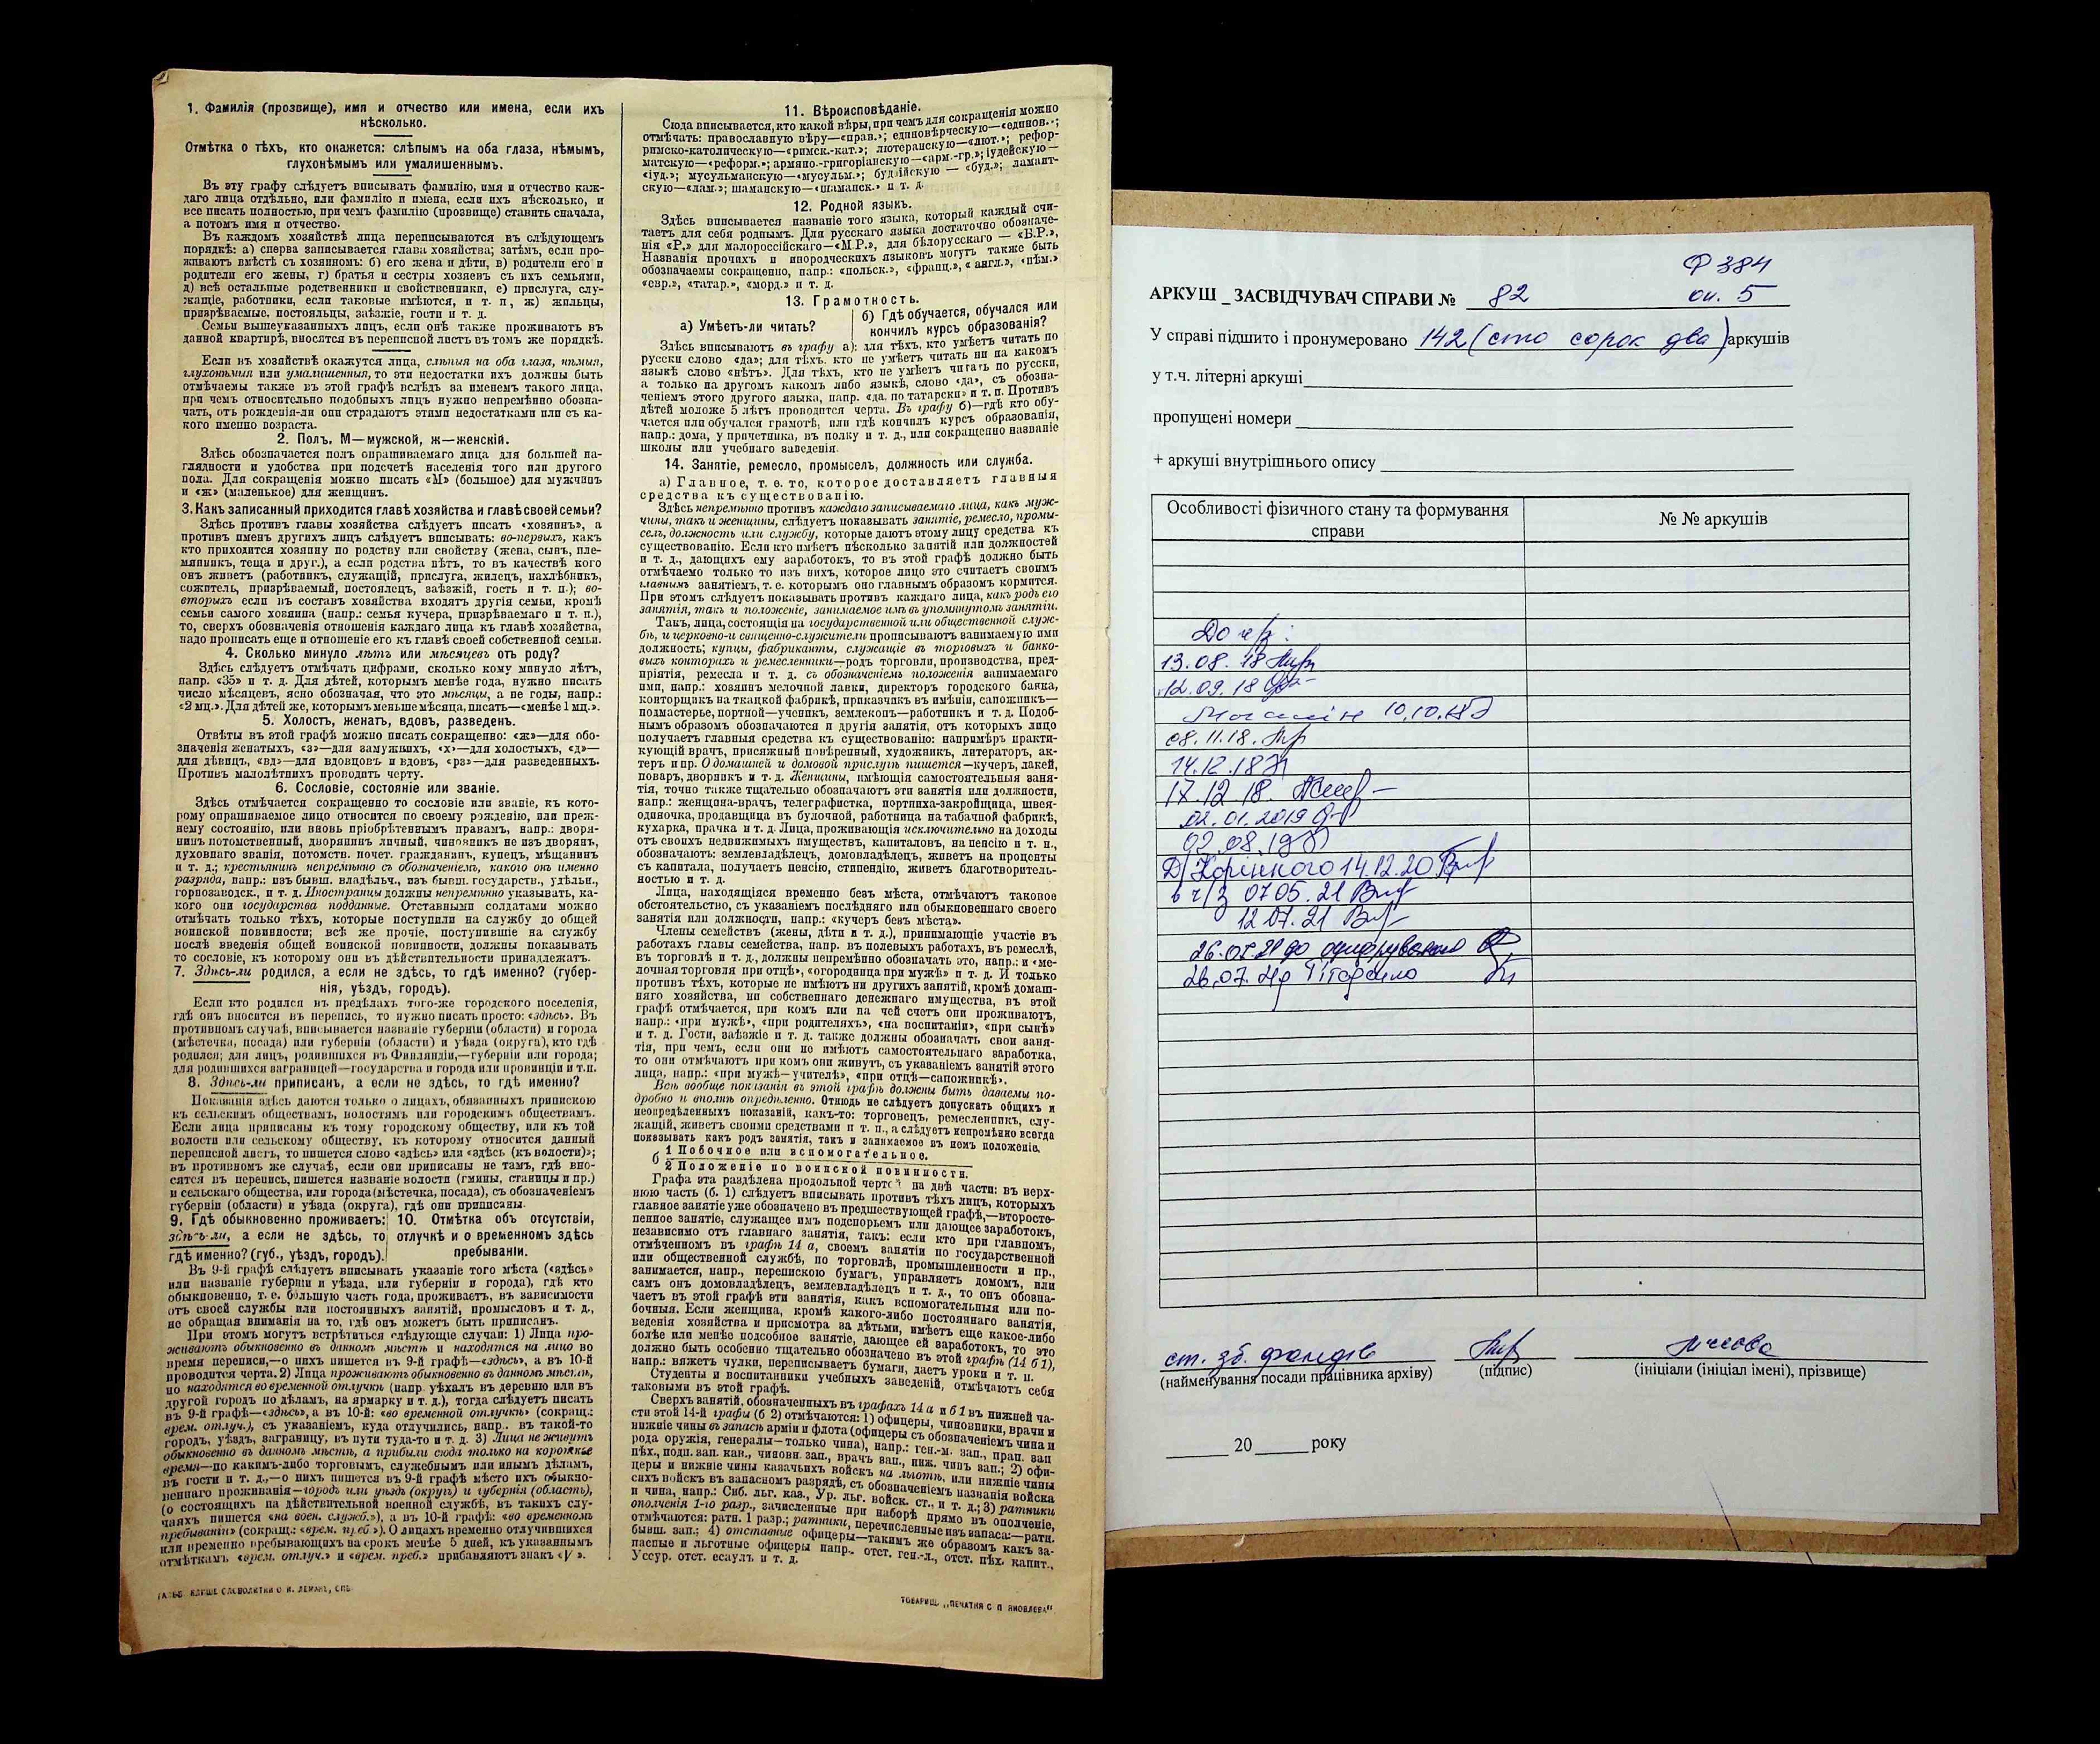 1. Фамилія (прозвище), имя и отчество или имена, если ихъ
нѣсколько.
Отмѣтка о тѣхъ, кто окажется: слѣпымъ на оба глаза, нѣмымъ,
глухонѣмымъ или умалишеннымъ.
Въ эту графу слѣдуетъ вписывать фамилію, имя и отчество каж-
даго лица отдѣльно, или фамилію и имена, если ихъ нѣсколько, и
все писать полностью, при чемъ фамилію (прозвище) ставить сначала,
а потомъ имя и отчество.
Въ каждомъ хозяйствѣ лица переписываются въ слѣдующемъ
порядкѣ: а) сперва записывается глава хозяйства; затѣмъ, если про-
живаютъ вмѣстѣ съ хозяиномъ: б) его жена и дѣти, в) родители его и
родители его жены, г) братья и сестры хозяевъ съ ихъ семьями,
д) всѣ остальные родственники и свойственники, е) прислуга, слу-
жащіе, работники, если таковые имѣются, и т. п, ж) жильцы,
призрѣваемые, постояльцы, заѣзжіе, гости и т. д.
Семьи вышеуказанныхъ лицъ, если онѣ также проживаютъ въ
данной квартирѣ, вносятся въ переписной листъ въ томъ же порядкѣ.
Если въ хозяйствѣ окажутся лица, слѣпыя на оба глаза, нѣмыя,
глухонѣмыя или умалишенныя, то эти недостатки ихъ должны быть
отмѣчаемы также въ этой графѣ вслѣдъ за именемъ такого лица,
при чемъ относительно подобныхъ лицъ нужно непремѣнно обозна-
чать, отъ рожденія-ли они страдаютъ этими недостатками или съ ка-
кого именно возраста.
2. Полъ, М—мужской, ж—женскій.
Здѣсь обозначается полъ опрашиваемаго лица для большей на-
глядности и удобства при подсчетѣ населенія того или другого
пола. Для сокращенія можно писать «М» (большое) для мужчинъ
и «ж» (маленькое) для женщинъ.
3. Какъ записанный приходится главѣ хозяйства и главѣ своей семьи?
Здѣсь противъ главы хозяйства слѣдуетъ писать «хозяинъ», а
противъ именъ другихъ лицъ слѣдуетъ вписывать: во-первыхъ, какъ
кто приходится хозяину по родству или свойству (жена, сынъ, пле-
мянникъ, теща и друг.), а если родства нѣтъ, то въ качествѣ кого
онъ живетъ (работникъ, служащій, прислуга, жилецъ, нахлѣбникъ,
сожитель, призрѣваемый, постоялецъ, заѣзжій, гость и т. п.); во-
вторыхъ если въ составъ хозяйства входятъ другія семьи, кромѣ
семьи самого хозяина (напр.: семья кучера, призрѣваемаго и т. п.),
то, сверхъ обозначенія отношенія каждаго лица къ главѣ хозяйства,
надо прописать еще и отношеніе его къ главѣ своей собственной семьи.
4. Сколько минуло лѣтъ или мѣсяцевъ отъ роду?
Здѣсь слѣдуетъ отмѣчать цифрами, сколько кому минуло лѣтъ,
напр. «35» и т. д. Для дѣтей, которымъ менѣе года, нужно писать
число мѣсяцевъ, ясно обозначая, что это мѣсяцы, а не годы, напр.:
«2 мц.». Для дѣтей же, которымъ меньше мѣсяца, писать—«менѣе 1 мц.».
5. Холостъ, женатъ, вдовъ, разведенъ.
Отвѣты въ этой графѣ можно писать сокращенно: «ж»—для обо-
значенія женатыхъ, «з»—для замужнихъ, «х»—для холостыхъ, «д»—
для дѣвицъ, «вд»—для вдовцовъ и вдовъ, «рз»—для разведенныхъ.
Противъ малолѣтнихъ проводить черту.
6. Сословіе, состояніе или званіе.
Здѣсь отмѣчается сокращенно то сословіе или званіе, къ кото-
рому опрашиваемое лицо относится по своему рожденію, или преж-
нему состоянію, или вновь пріобрѣтеннымъ правамъ, напр.: дворя-
нинъ потомственный, дворянинъ личный, чиновникъ не изъ дворянъ,
духовнаго званія, потомств. почет. гражданинъ, купецъ, мѣщанинъ
и т. д.; крестьянинъ непремѣнно съ обозначеніемъ, какого онъ именно
разряда, напр.: изъ бывш. владѣльч., изъ бывш. государств., удѣльн.,
горнозаводск., и т. д. Иностранцы должны непремѣнно указывать, ка-
кого они государства подданные. Отставными солдатами можно
отмѣчать только тѣхъ, которые поступили на службу до общей
воинской повинности; всѣ же прочіе, поступившіе на службу
послѣ введенія общей воинской повинности, должны показывать
то сословіе, къ которому они въ дѣйствительности принадлежатъ.
7. Здѣсь-ли родился, а если не здѣсь, то гдѣ именно? (губер-
нія, уѣздъ, городъ).
Если кто родился въ предѣлахъ того-же городского поселенія,
гдѣ онъ вносится въ перепись, то нужно писать просто: «здѣсь». Въ
противномъ случаѣ, вписывается названіе губерніи (области) и города
(мѣстечка, посада) или губерніи (области) и уѣзда (округа), кто гдѣ
родился; для лицъ, родившихся въ Финляндіи,—губерніи или города;
для родившихся заграницей—государства и города или провинціи и т.п.
8. Здѣсь-ли приписанъ, а если не здѣсь, то гдѣ именно?
Показанія здѣсь даются только о лицахъ, обязанныхъ припискою
къ сельскимъ обществамъ, волостямъ или городскимъ обществамъ.
Если лица приписаны къ тому городскому обществу, или къ той
волости или сельскому обществу, къ которому относится данный
переписной листъ, то пишется слово «здѣсь» или «здѣсь (къ волости)»;
въ противномъ же случаѣ, если они приписаны не тамъ, гдѣ вно-
сятся въ перепись, пишется названіе волости (гмины, станицы и пр.)
и сельскаго общества, или города (мѣстечка, посада), съ обозначеніемъ
губерніи (области) и уѣзда (округа), гдѣ они приписаны.
9. Гдѣ обыкновенно проживаетъ:
здѣсь-ли, а если не здѣсь, то
гдѣ именно? (губ., уѣздъ, городъ).
10. Отмѣтка объ отсутствіи,
отлучкѣ и о временномъ здѣсь
пребываніи.
Въ 9-й графѣ слѣдуетъ вписывать указаніе того мѣста («здѣсь»
или названіе губерніи и уѣзда, или губерніи и города), гдѣ кто
обыкновенно, т. е. большую часть года, проживаетъ, въ зависимости
отъ своей службы или постоянныхъ занятій, промысловъ и т. д.,
не обращая вниманія на то, гдѣ онъ можетъ быть приписанъ.
При этомъ могутъ встрѣтиться слѣдующіе случаи: 1) Лица про-
живаютъ обыкновенно въ данномъ мѣстѣ и находятся на лицо во
время переписи,—о нихъ пишется въ 9-й графѣ—«здѣсь», а въ 10-й
проводится черта. 2) Лица проживаютъ обыкновенно въ данномъ мѣстѣ,
но находятся во временной отлучкѣ (напр. уѣхалъ въ деревню или въ
другой городъ по дѣламъ, на ярмарку и т. д.), тогда слѣдуетъ писать
въ 9-й графѣ—«здѣсь», а въ 10-й: «во временной отлучкѣ» (сокращ.:
врем. отлуч.), съ указаніемъ, куда отлучились, напр.. въ такой-то
городъ, уѣздъ, заграницу, въ пути туда-то и т. д. 3) Лица не живутъ
обыкновенно въ данномъ мѣстѣ, а прибыли сюда только на короткое
время—по какимъ-либо торговымъ, служебнымъ или инымъ дѣламъ,
въ гости и т. д.,—о нихъ пишется въ 9-й графѣ мѣсто ихъ обыкно-
веннаго проживанія—городъ или уѣздъ (округъ) и губернія (область),
(о состоящихъ на дѣйствительной военной службѣ, въ такихъ слу-
чаяхъ пишется «на воен. служб.»), а въ 10-й графѣ: «во временномъ
пребываніи» (сокращ.: «врем. преб.»). О лицахъ временно отлучившихся
или временно пребывающихъ на срокъ менѣе 5 дней, къ указаннымъ
отмѣткамъ «врем. отлуч.» и «врем. преб.» прибавляютъ знакъ «V».
КЛИШЕ СЛОВОЛИТНИ О. И. ЛЕМАНЪ, СПБ
11. Вѣроисповѣданіе.
Сюда вписывается, кто какой вѣры, при чемъ для сокращенія можно
отмѣчать: православную вѣру—«прав.»; единовѣрческую—«единов.»;
римско-католическую—«римск.-кат.»; лютеранскую—«лют.»; рефор-
матскую—«реформ.»; армяно-григоріанскую—«арм.-гр.»; іудейскую—
«іуд.»; мусульманскую—«мусульм.»; буддійскую — «буд.»; ламаит-
скую—«лам.»; шаманскую—«шаманск.» и т. д.
12. Родной языкъ.
Здѣсь вписывается названіе того языка, который каждый счи-
таетъ для себя роднымъ. Для русскаго языка достаточно обозначе-
нія «Р.» для малороссійскаго—«М.Р.», для бѣлорусскаго — «Б.Р.»,
Названія прочихъ и инородческихъ языковъ могутъ также быть
обозначаемы сокращенно, напр.: «польск.», «франц.», «англ.», «нѣм.»
«евр.», «татар.», «морд.» и т. д.
13. Грамотность.
а) Умѣетъ-ли читать?
б) Гдѣ обучается, обучался или
кончилъ курсъ образованія?
Здѣсь вписываютъ въ графу а): для тѣхъ, кто умѣетъ читать по
русски слово «да»; для тѣхъ, кто не умѣетъ читать ни на какомъ
языкѣ слово «нѣтъ». Для тѣхъ, кто не умѣетъ читать по русски,
а только на другомъ какомъ либо языкѣ, слово «да», съ обозна-
ченіемъ этого другого языка, напр. «да, по татарски» и т. п. Противъ
дѣтей моложе 5 лѣтъ проводится черта. Въ графу б)—гдѣ кто обу-
чается или обучался грамотѣ, или гдѣ кончилъ курсъ образованія,
напр.: дома, у причетника, въ полку и т. д., или сокращенно названіе
школы или учебнаго заведенія.
14. Занятіе, ремесло, промыселъ, должность или служба.
а) Главное, т. е. то, которое доставляетъ главныя
средства къ существованію.
Здѣсь непремѣнно противъ каждаго записываемаго лица, какъ муж-
чины, такъ и женщины, слѣдуетъ показывать занятіе, ремесло, промы-
селъ, должность или службу, которые даютъ этому лицу средства къ
существованію. Если кто имѣетъ нѣсколько занятій или должностей
и т. д., дающихъ ему заработокъ, то въ этой графѣ должно быть
отмѣчаемо только то изъ нихъ, которое лицо это считаетъ своимъ
главнымъ занятіемъ, т. е. которымъ оно главнымъ образомъ кормится.
При этомъ слѣдуетъ показывать противъ каждаго лица, какъ родъ его
занятія, такъ и положеніе, занимаемое имъ въ упомянутомъ занятіи.
Такъ, лица, состоящія на государственной или общественной служ-
бѣ, и церковно-и священно-служители прописываютъ занимаемую ими
должность; купцы, фабриканты, служащіе въ торговыхъ и банко-
выхъ конторахъ и ремесленники—родъ торговли, производства, пред-
пріятія, ремесла и т. д. съ обозначеніемъ положенія занимаемаго
ими, напр.: хозяинъ мелочной лавки, директоръ городского банка,
конторщикъ на ткацкой фабрикѣ, приказчикъ въ имѣніи, сапожникъ—
подмастерье, портной—ученикъ, землекопъ—работникъ и т. д. Подоб-
нымъ образомъ обозначаются и другія занятія, отъ которыхъ лицо
получаетъ главныя средства къ существованію: напримѣръ практи-
кующій врачъ, присяжный повѣренный, художникъ, литераторъ, ак-
теръ и пр. О домашней и домовой прислугѣ пишется—кучеръ, лакей,
поваръ, дворникъ и т. д. Женщины, имѣющія самостоятельныя заня-
тія, точно также тщательно обозначаютъ эти занятія или должности,
напр.: женщина-врачъ, телеграфистка, портниха-закройщица, швея-
одиночка, продавщица въ булочной, работница на табачной фабрикѣ,
кухарка, прачка и т. д. Лица, проживающія исключительно на доходы
отъ своихъ недвижимыхъ имуществъ, капиталовъ, на пенсію и т. п.,
обозначаютъ: землевладѣлецъ, домовладѣлецъ, живетъ на проценты
съ капитала, получаетъ пенсію, стипендію, живетъ благотворитель-
ностью и т. д.
Лица, находящіяся временно безъ мѣста, отмѣчаютъ таковое
обстоятельство, съ указаніемъ послѣдняго или обыкновеннаго своего
занятія или должности, напр.: «кучеръ безъ мѣста».
Члены семействъ (жены, дѣти и т. д.), принимающіе участіе въ
работахъ главы семейства, напр. въ полевыхъ работахъ, въ ремеслѣ,
въ торговлѣ и т. д., должны непремѣнно обозначать это, напр.: и «ме-
лочная торговля при отцѣ», «огородница при мужѣ» и т. д. И только
противъ тѣхъ, которые не имѣютъ ни другихъ занятій, кромѣ домаш-
няго хозяйства, ни собственнаго денежнаго имущества, въ этой
графѣ отмѣчается, при комъ или на чей счетъ они проживаютъ,
напр.: «при мужѣ», «при родителяхъ», «на воспитаніи», «при сынѣ»
и т. д. Гости, заѣзжіе и т. д. также должны обозначать свои заня-
тія, при чемъ, если они не имѣютъ самостоятельнаго заработка,
то они отмѣчаютъ при комъ они живутъ, съ указаніемъ занятій этого
лица, напр.: «при мужѣ—учителѣ», «при отцѣ—сапожникѣ».
Всѣ вообще показанія въ этой графѣ должны быть даваемы по-
дробно и вполнѣ опредѣленно. Отнюдь не слѣдуетъ допускать общихъ и
неопредѣленныхъ показаній, какъ-то: торговецъ, ремесленникъ, слу-
жащій, живетъ своими средствами и т. п., а слѣдуетъ непремѣнно всегда
показывать какъ родъ занятія, такъ и занимаемое въ немъ положеніе.
б 1 Побочное или вспомогательное.
2 Положеніе по воинской повинности.
Графа эта раздѣлена продольной чертой на двѣ части: въ верх-
нюю часть (б. 1) слѣдуетъ вписывать противъ тѣхъ лицъ, которыхъ
главное занятіе уже обозначено въ предшествующей графѣ,—второсте-
пенное занятіе, служащее имъ подспорьемъ или дающее заработокъ,
независимо отъ главнаго занятія, такъ: если кто при главномъ,
отмѣченномъ въ графѣ 14 а, своемъ занятіи по государственной
или общественной службѣ, по торговлѣ, промышленности и пр.,
занимается, напр., перепискою бумагъ, управляетъ домомъ, или
самъ онъ домовладѣлецъ, землевладѣлецъ и т. д., то онъ обозна-
чаетъ въ этой графѣ эти занятія, какъ вспомогательныя или по-
бочныя. Если женщина, кромѣ какого-либо постояннаго занятія,
веденія хозяйства и присмотра за дѣтьми, имѣетъ еще какое-либо
болѣе или менѣе подсобное занятіе, дающее ей заработокъ, то это
должно быть особенно тщательно обозначено въ этой графѣ (14 б 1),
напр.: вяжетъ чулки, переписываетъ бумаги, даетъ уроки и т. п.
Студенты и воспитанники учебныхъ заведеній, отмѣчаютъ себя
таковыми въ этой графѣ.
Сверхъ занятій, обозначенныхъ въ графахъ 14 а и б 1 въ нижней ча-
сти этой 14-й графы (б 2) отмѣчаются: 1) офицеры, чиновники, врачи и
нижніе чины въ запасѣ арміи и флота (офицеры съ обозначеніемъ чина и
рода оружія, генералы—только чина), напр.: ген.-м. зап., прап. зап
пѣх., подп. зап. кав., чиновн. зап., врачъ зап., ниж. чинъ зап.; 2) офи-
церы и нижніе чины казачьихъ войскъ на льготѣ, или нижніе чины
сихъ войскъ въ запасномъ разрядѣ, съ обозначеніемъ названія войска
и чина, напр.: Сиб. льг. каз., Ур. льг. войск. ст., и т. д.; 3) ратники
ополченія 1-го разр., зачисленные при наборѣ прямо въ ополченіе,
отмѣчаются: ратн. 1 разр.; ратники, перечисленные изъ запаса:—ратн.
бывш. зап.; 4) отставные офицеры—такимъ же образомъ какъ за-
пасные и льготные офицеры напр.. отст. ген.-л., отст. пѣх. капит.,
Уссур. отст. есаулъ и т. д.
ТОВАРИЩ. „ПЕЧАТНЯ С. П. ЯКОВЛЕВА“
Ф 384
АРКУШ _ ЗАСВІДЧУВАЧ СПРАВИ № 82 оп. 5
У справі підшито і пронумеровано 142 (сто сорок два) аркушів
у т.ч. літерні аркуші
пропущені номери
+ аркуші внутрішнього опису
Особливості фізичного стану та формування
справи
№ № аркушів
До ч/з:
13.08.18
12.09.18
10.10.18
08.11.18.
14.12.18
17.12.18.
02.01.2019
02.08.19
14.12.20
в ч/з 07 05. 21
12.07.21
26.07.21 до оцифрування
26.07.21
ст. зб. фондів
(найменування посади працівника архіву)
(підпис)
(ініціали (ініціал імені), прізвище)
20 року